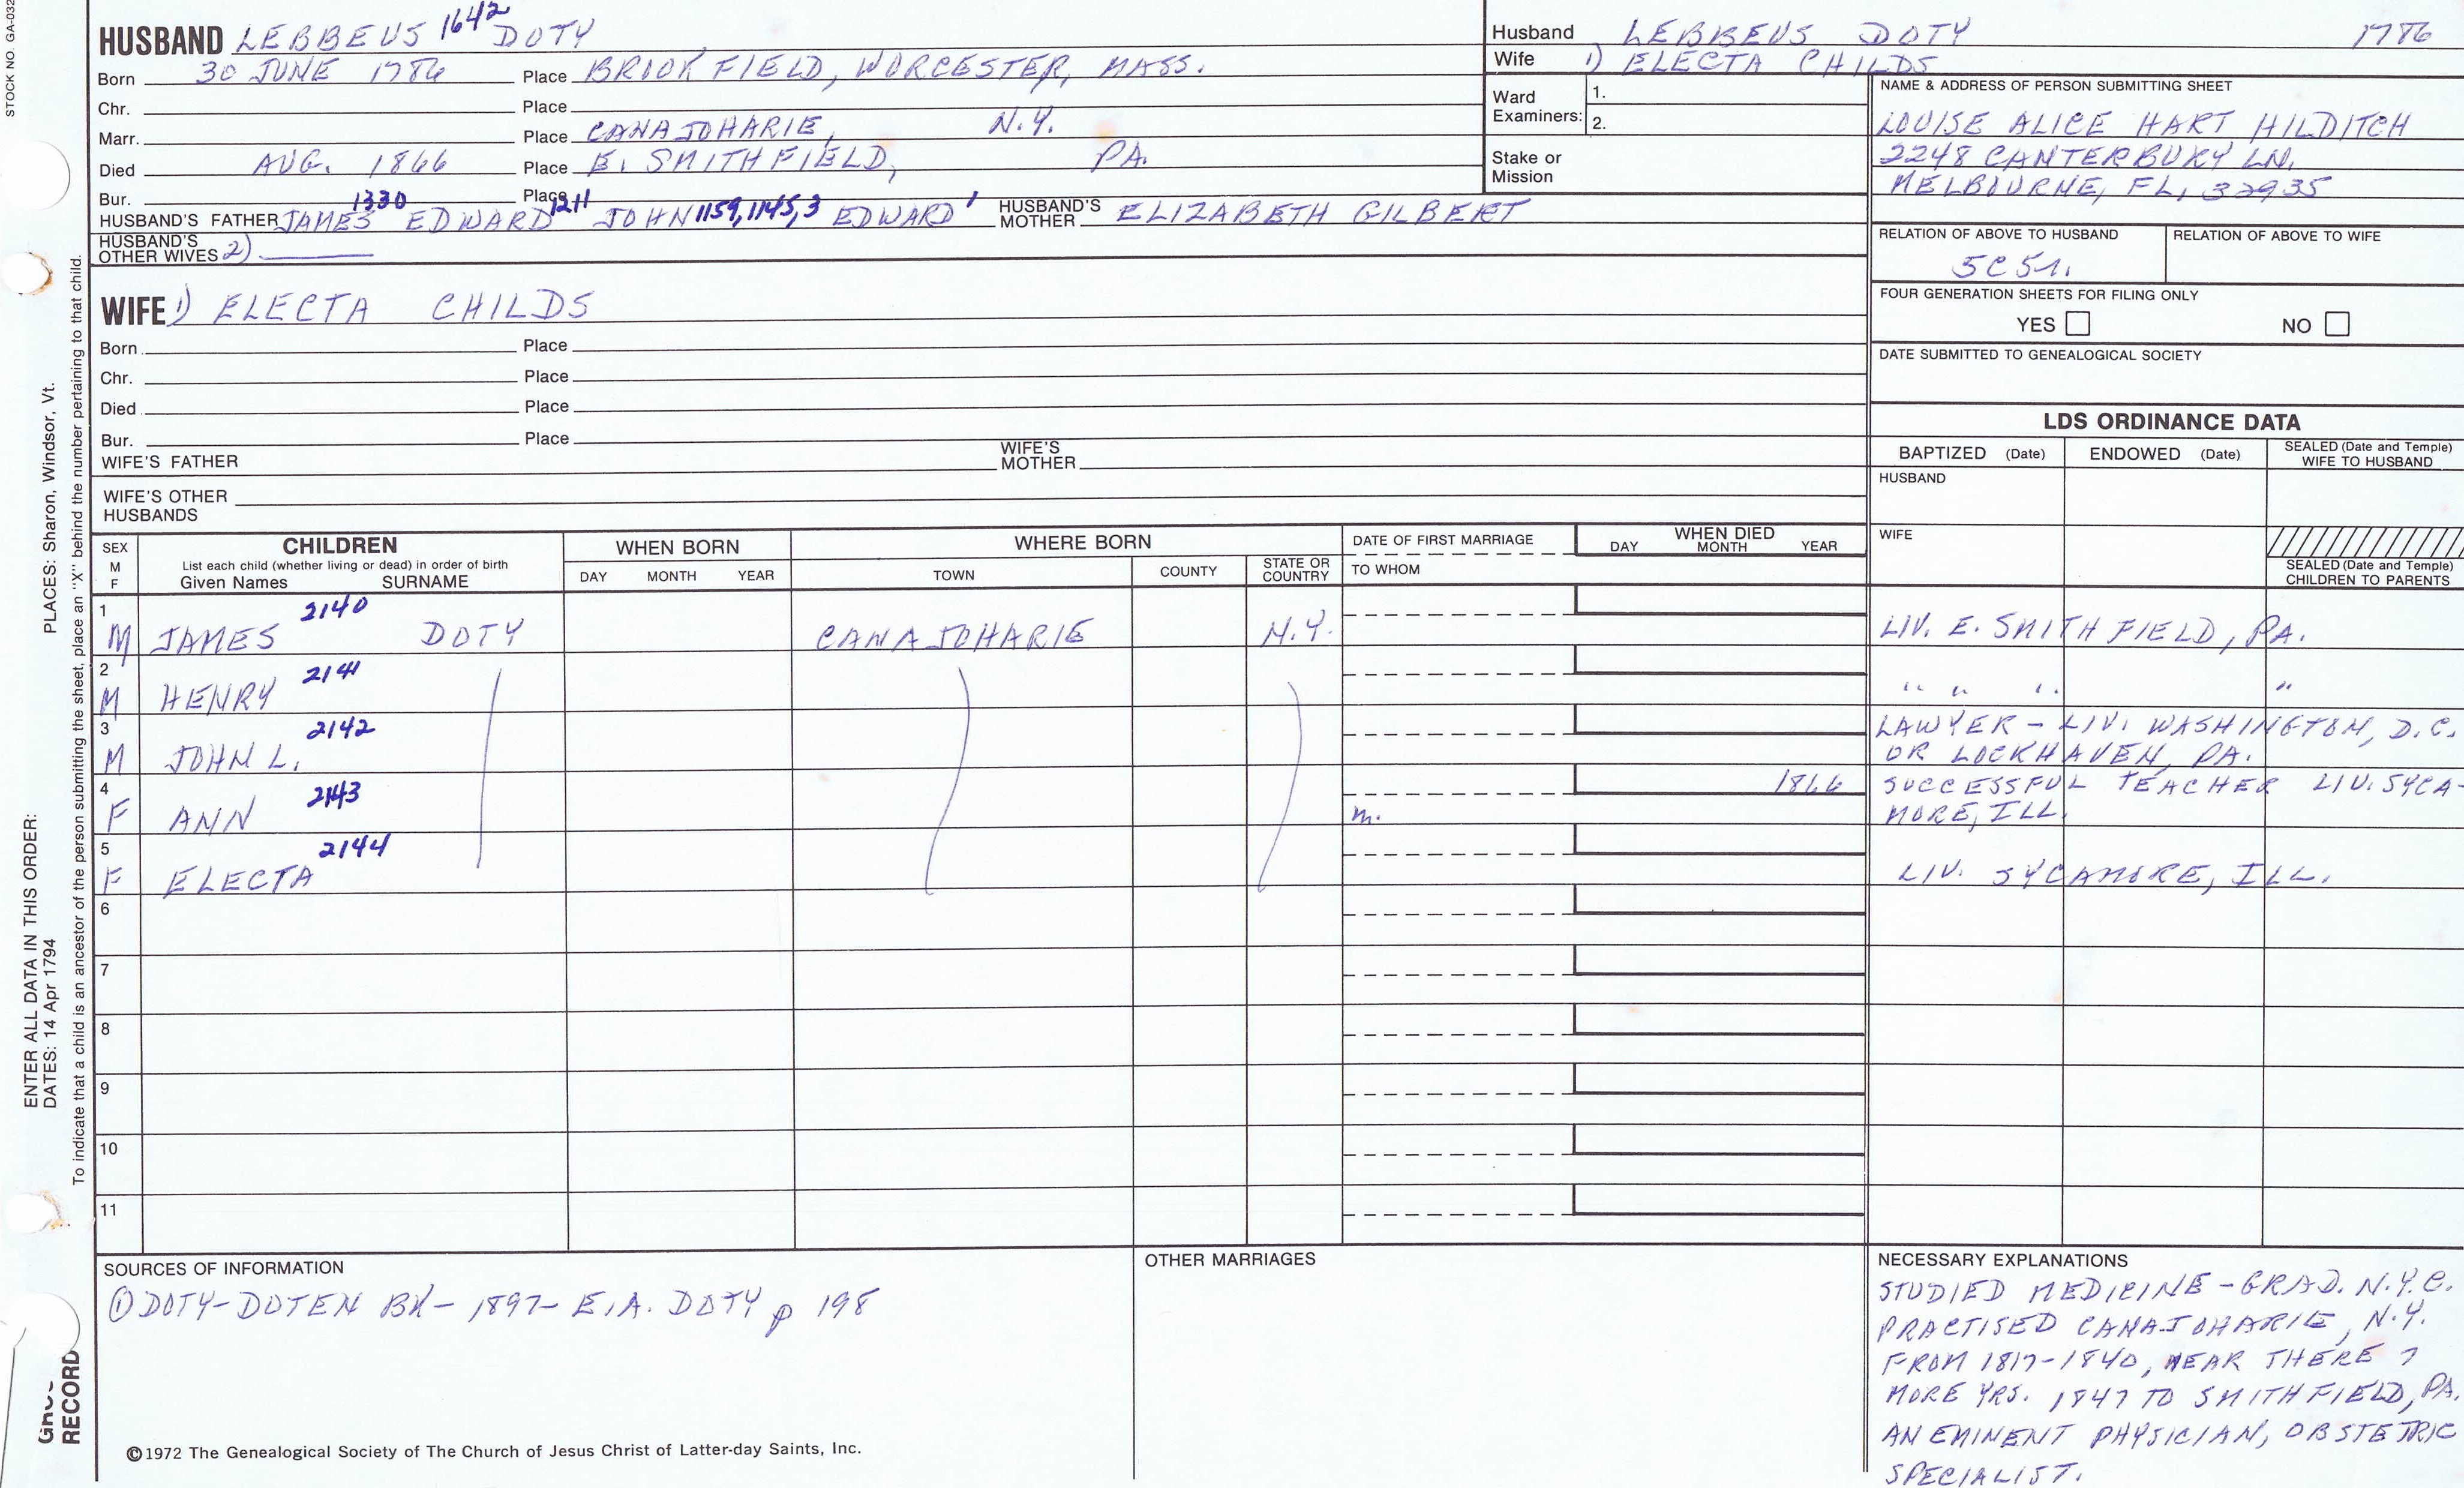 STOCK NO. GA-032
PLACES: Sharon, Windsor, Vt.
ENTER ALL DATA IN THIS ORDER:
DATES: 14 Apr 1794
To indicate that a child is an ancestor of the person submitting the sheet, place an "X" behind the number pertaining to that child.
RECORD
HUSBAND LEBBEUS 1642 DOTY
Born 30 JUNE 1786 Place BROOKFIELD, WORCESTER, MASS.
Chr. Place
Marr. Place CANAJOHARIE, N.Y.
Died AUG. 1866 Place E. SMITHFIELD, PA.
Bur. Place
HUSBAND'S FATHER JAMES 1330 EDWARD 1211 JOHN 1159, 1145, 3 EDWARD 1 HUSBAND'S MOTHER ELIZABETH GILBERT
HUSBAND'S OTHER WIVES 2)
Husband LEBBEUS DOTY 1786
Wife 1) ELECTA CHILDS
Ward Examiners: 1.
2.
Stake or Mission
NAME & ADDRESS OF PERSON SUBMITTING SHEET
LOUISE ALICE HART HILDITCH
2248 CANTERBURY LN.
MELBOURNE, FL, 32935
RELATION OF ABOVE TO HUSBAND RELATION OF ABOVE TO WIFE
5C5r.
FOUR GENERATION SHEETS FOR FILING ONLY
YES NO
DATE SUBMITTED TO GENEALOGICAL SOCIETY
WIFE 1) ELECTA CHILDS
Born Place
Chr. Place
Died Place
Bur. Place
WIFE'S FATHER WIFE'S MOTHER
WIFE'S OTHER HUSBANDS
LDS ORDINANCE DATA
BAPTIZED (Date) ENDOWED (Date) SEALED (Date and Temple) WIFE TO HUSBAND
HUSBAND
WIFE
SEALED (Date and Temple) CHILDREN TO PARENTS
SEX M F
CHILDREN
List each child (whether living or dead) in order of birth
Given Names SURNAME
WHEN BORN
DAY MONTH YEAR
WHERE BORN
TOWN COUNTY STATE OR COUNTRY
DATE OF FIRST MARRIAGE
TO WHOM
WHEN DIED
DAY MONTH YEAR
1 M JAMES 2140 DOTY CANAJOHARIE N.Y. LIV. E. SMITHFIELD, PA.
2 M HENRY 2141 " " " "
3 M JOHN L. 2142 LAWYER - LIV. WASHINGTON, D.C.
OR LOCKHAVEN, PA.
4 F ANN 2143 m. 1866 SUCCESSFUL TEACHER LIV. SYCA-
MORE, ILL.
5 F ELECTA 2144 LIV. SYCAMORE, ILL.
6
7
8
9
10
11
SOURCES OF INFORMATION
① DOTY-DOTEN BK- 1897- E.A. DOTY p 198
OTHER MARRIAGES
NECESSARY EXPLANATIONS
STUDIED MEDICINE - GRAD. N.Y.C.
PRACTISED CANAJOHARIE, N.Y.
FROM 1817-1840, NEAR THERE 7
MORE YRS. 1847 TO SMITHFIELD, PA.
AN EMINENT PHYSICIAN, OBSTETRIC
SPECIALIST.
©1972 The Genealogical Society of The Church of Jesus Christ of Latter-day Saints, Inc.